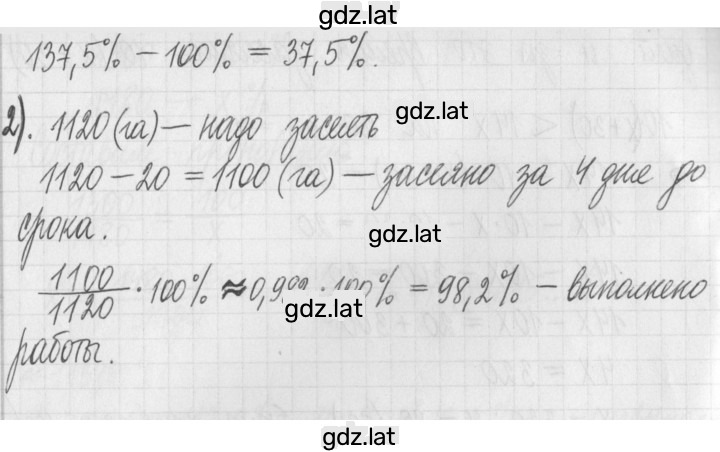 gdz.lat
137,5% − 100% = 37,5%.
2). 1120 (га) — надо засеять
gdz.lat
1120 − 20 = 1100 (га) — засеяно за 4 дне до
срока.
gdz.lat
1100/1120 · 100% ≈ · 100% = 98,2% — выполнено
gdz.lat
работы.
gdz.lat